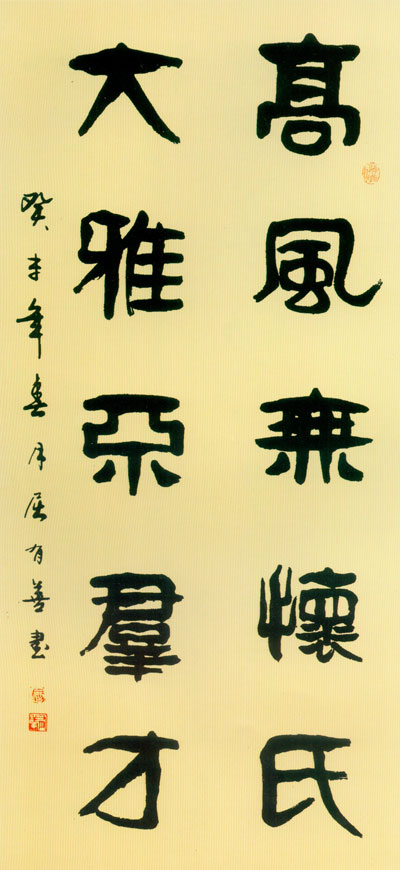 髙風無懷氏
大雅不羣才
癸未年春月屈有善書